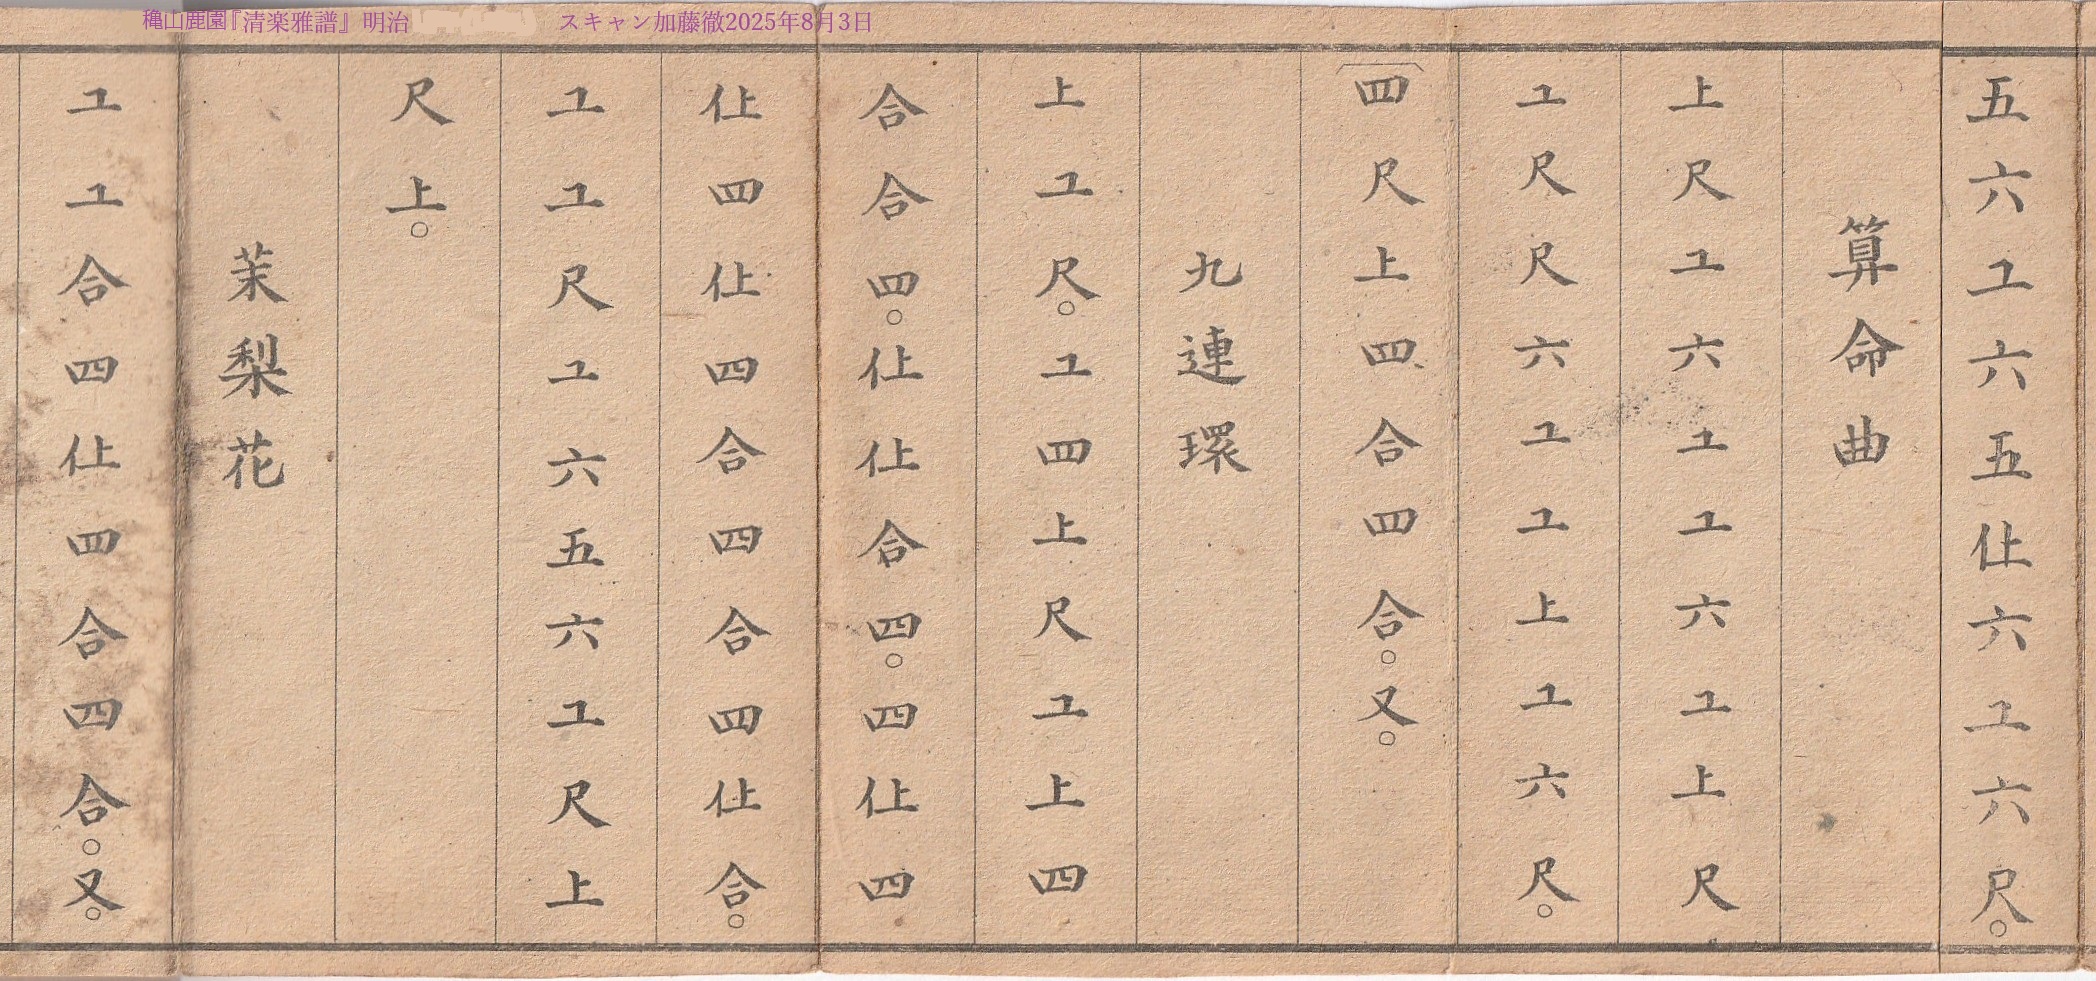 穐山鹿園『清楽雅譜』明治
スキャン加藤徹2025年8月3日
五六工六五仩六工六尺。
算命曲
上尺工六工工六工上尺
工尺尺六工工上工六尺。
四尺上四合四合。又。
九連環
上工尺。工四上尺工上四
合合四。仩仩合四。四仩四
仩四仩四合四合四仩合。
工工尺工六五六工尺上
尺上。
茉梨花
工工合四仩四合四合。又。